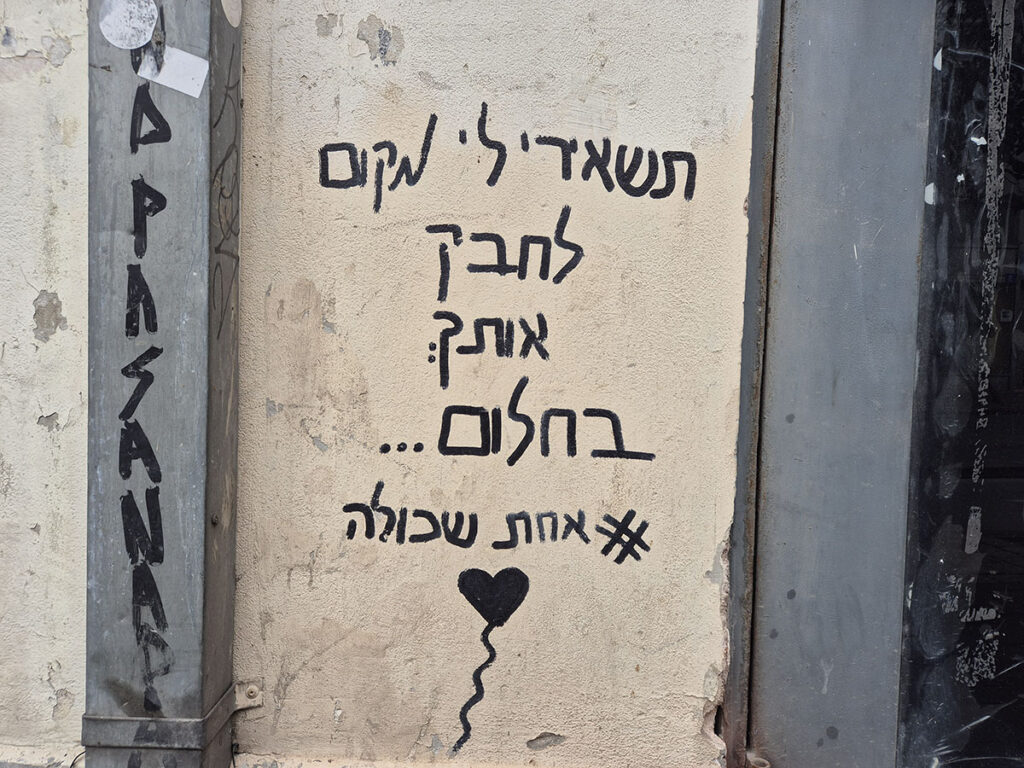 תשאירי לי מקום
לחבק
אותךְ
בחלום...
#אחת שכולה